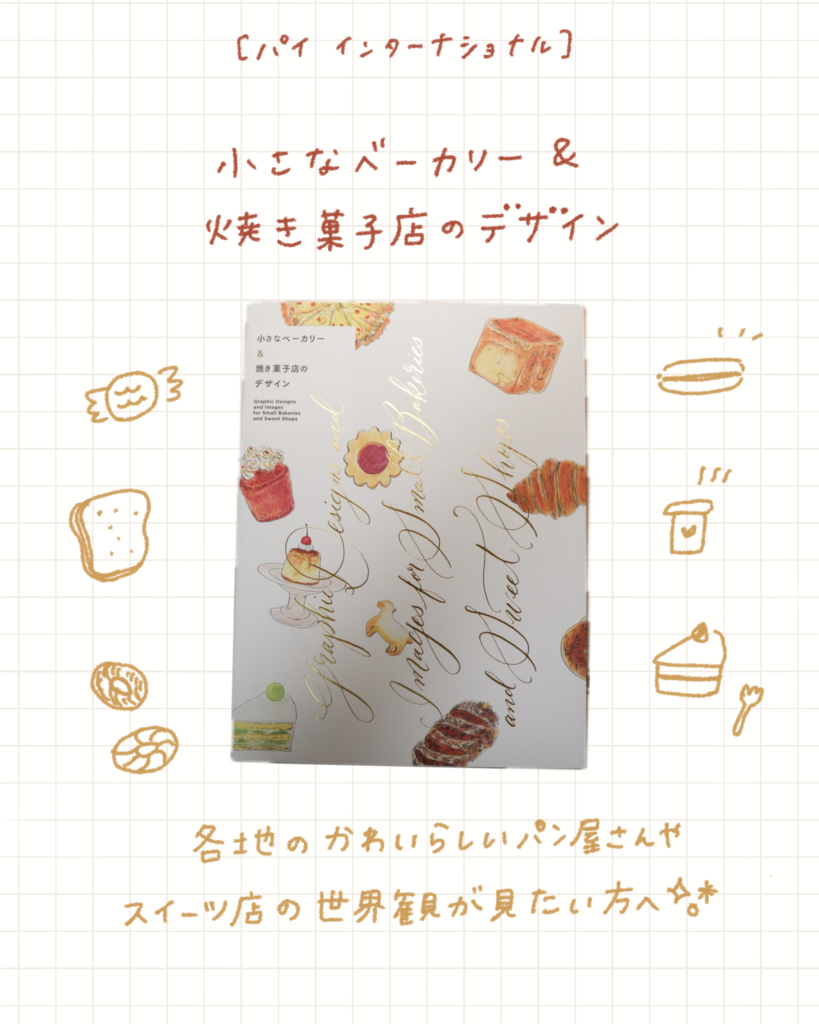 [パイ インターナショナル]
小さなベーカリー &
焼き菓子店のデザイン
小さなベーカリー
&
焼き菓子店の
デザイン
Graphic Designs
and Images
for Small Bakeries
and Sweet Shops
Graphic Designs and
Images for Small Bakeries
and Sweet Shops
各地のかわいらしいパン屋さんや
スイーツ店の世界観が見たい方へ